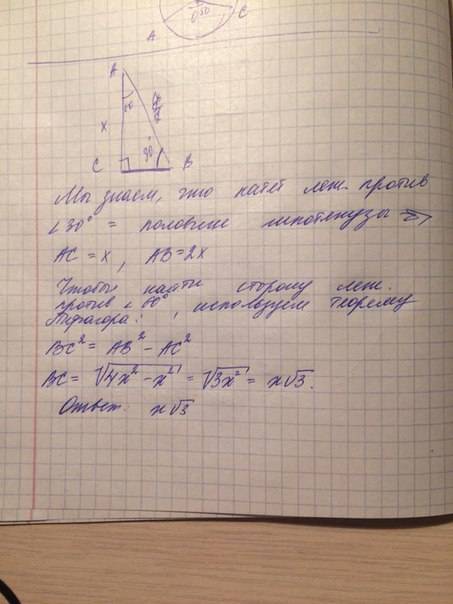 A
C
A
60
x
30°
C
B
Мы знаем, что катет леж. против
∠30° = половине гипотенузы ⇒
AC = x, AB = 2x
Чтобы найти сторону леж.
против ∠60°, используем теорему
Пифагора:
BC² = AB² - AC²
BC = √4x² - x² = √3x² = x√3.
Ответ: x√3